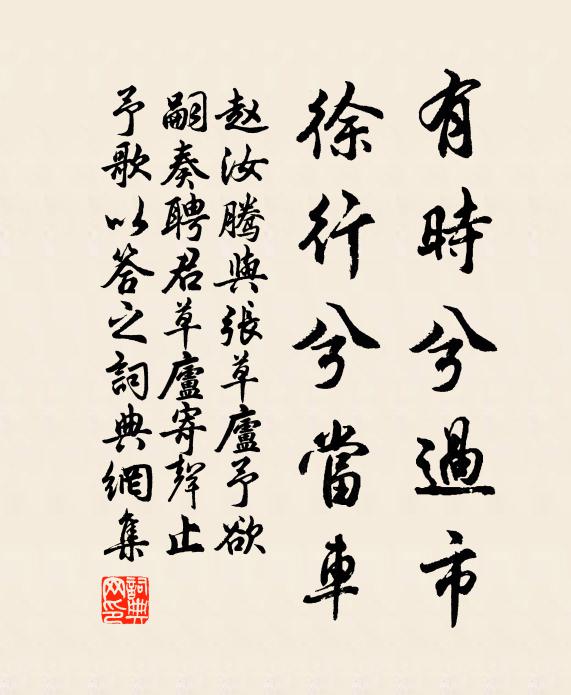 有時兮過市
徐行兮當車
赵汝騰與張草廬予欲
嗣奏聘君草廬寄聲止
予歌以答之詞典網集
詞典網印